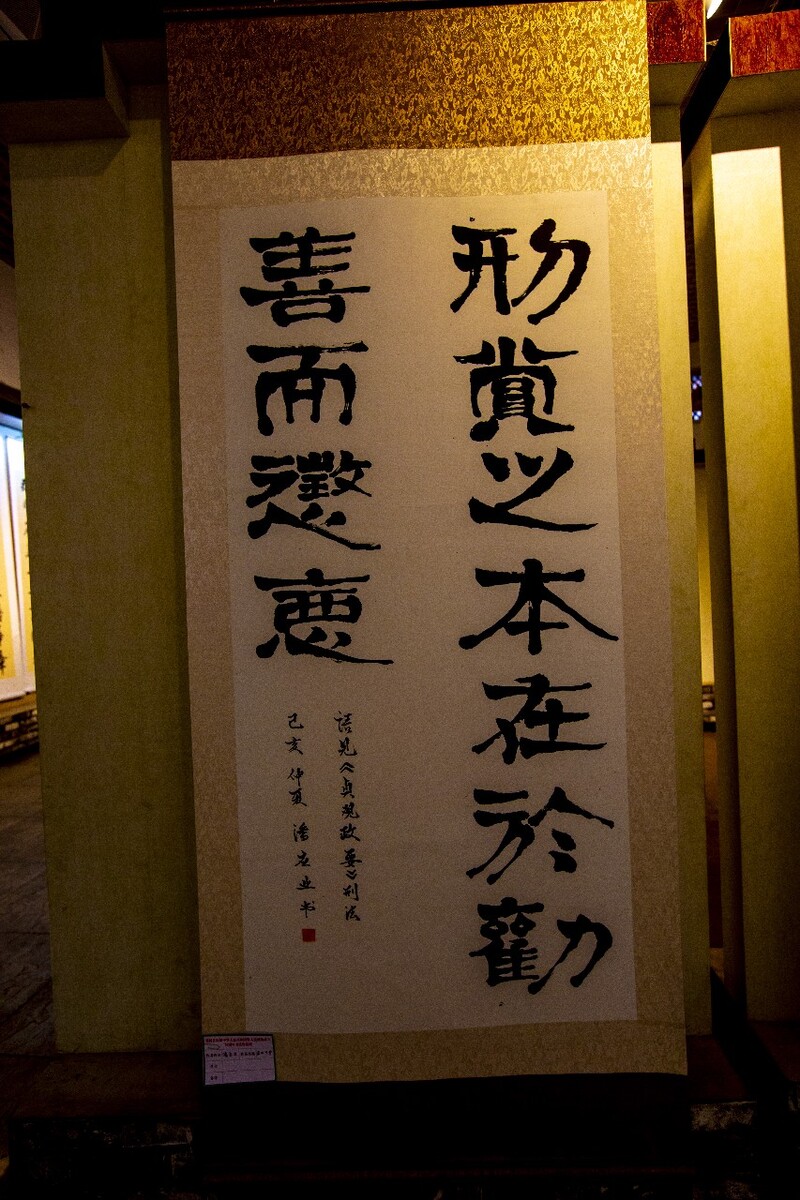 刑賞之本在於勸
善而懲惡
語見《貞观政要》刑法
己亥仲夏潘业书